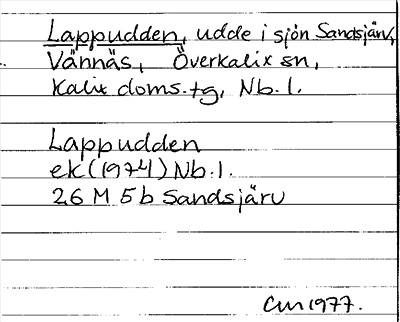 Lappudden, udde i sjön Sandsjärv,
Vännäs, Överkalix sn,
Kalix doms.tg, Nb.l.
Lappudden
ek (1974) Nb.l.
26 M 5b Sandsjärv
CM 1977.